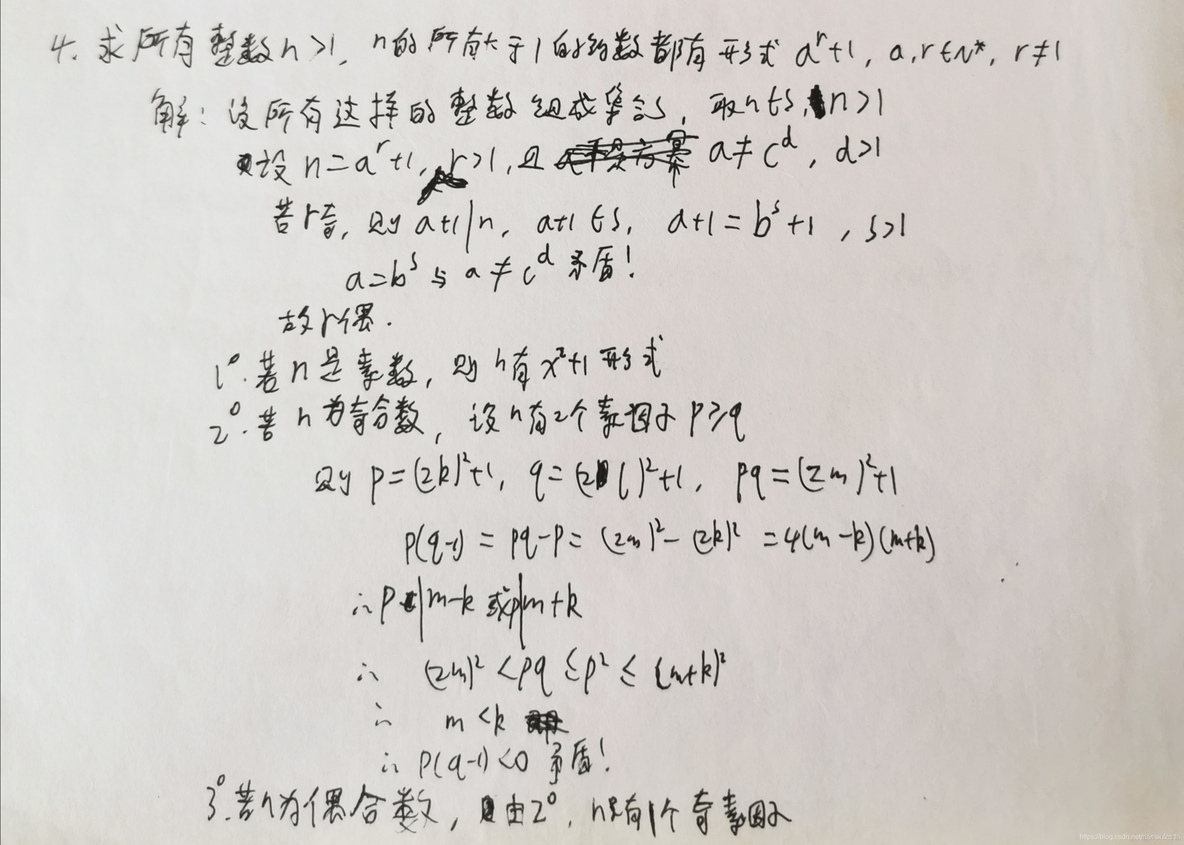 4. 求所有整数n>1, n的所有大于1的约数都有形式 a^r+1, a,r∈N*, r≠1
解: 设所有这样的整数组成集合S, 取n∈S, n>1
设 n=a^r+1, r>1, 且 a≠c^d, d>1
若r奇, 则 a+1|n, a+1∈S, a+1=b^s+1, s>1
a=b^s 与 a≠c^d 矛盾!
故r偶.
1°. 若n是素数, 则n有x²+1形式
2°. 若n为奇合数, 设n有2个素因子 p≥q
则 p=(2k)²+1, q=(2l)²+1, pq=(2m)²+1
p(q-1)=pq-p=(2m)²-(2k)²=4(m-k)(m+k)
∴p|m-k 或p|m+k
∴ (2m)²<pq≤p²≤(m+k)²
∴ m<k
∴ p(q-1)<0 矛盾!
3°. 若n为偶合数, 由2°, n只有1个奇素因子